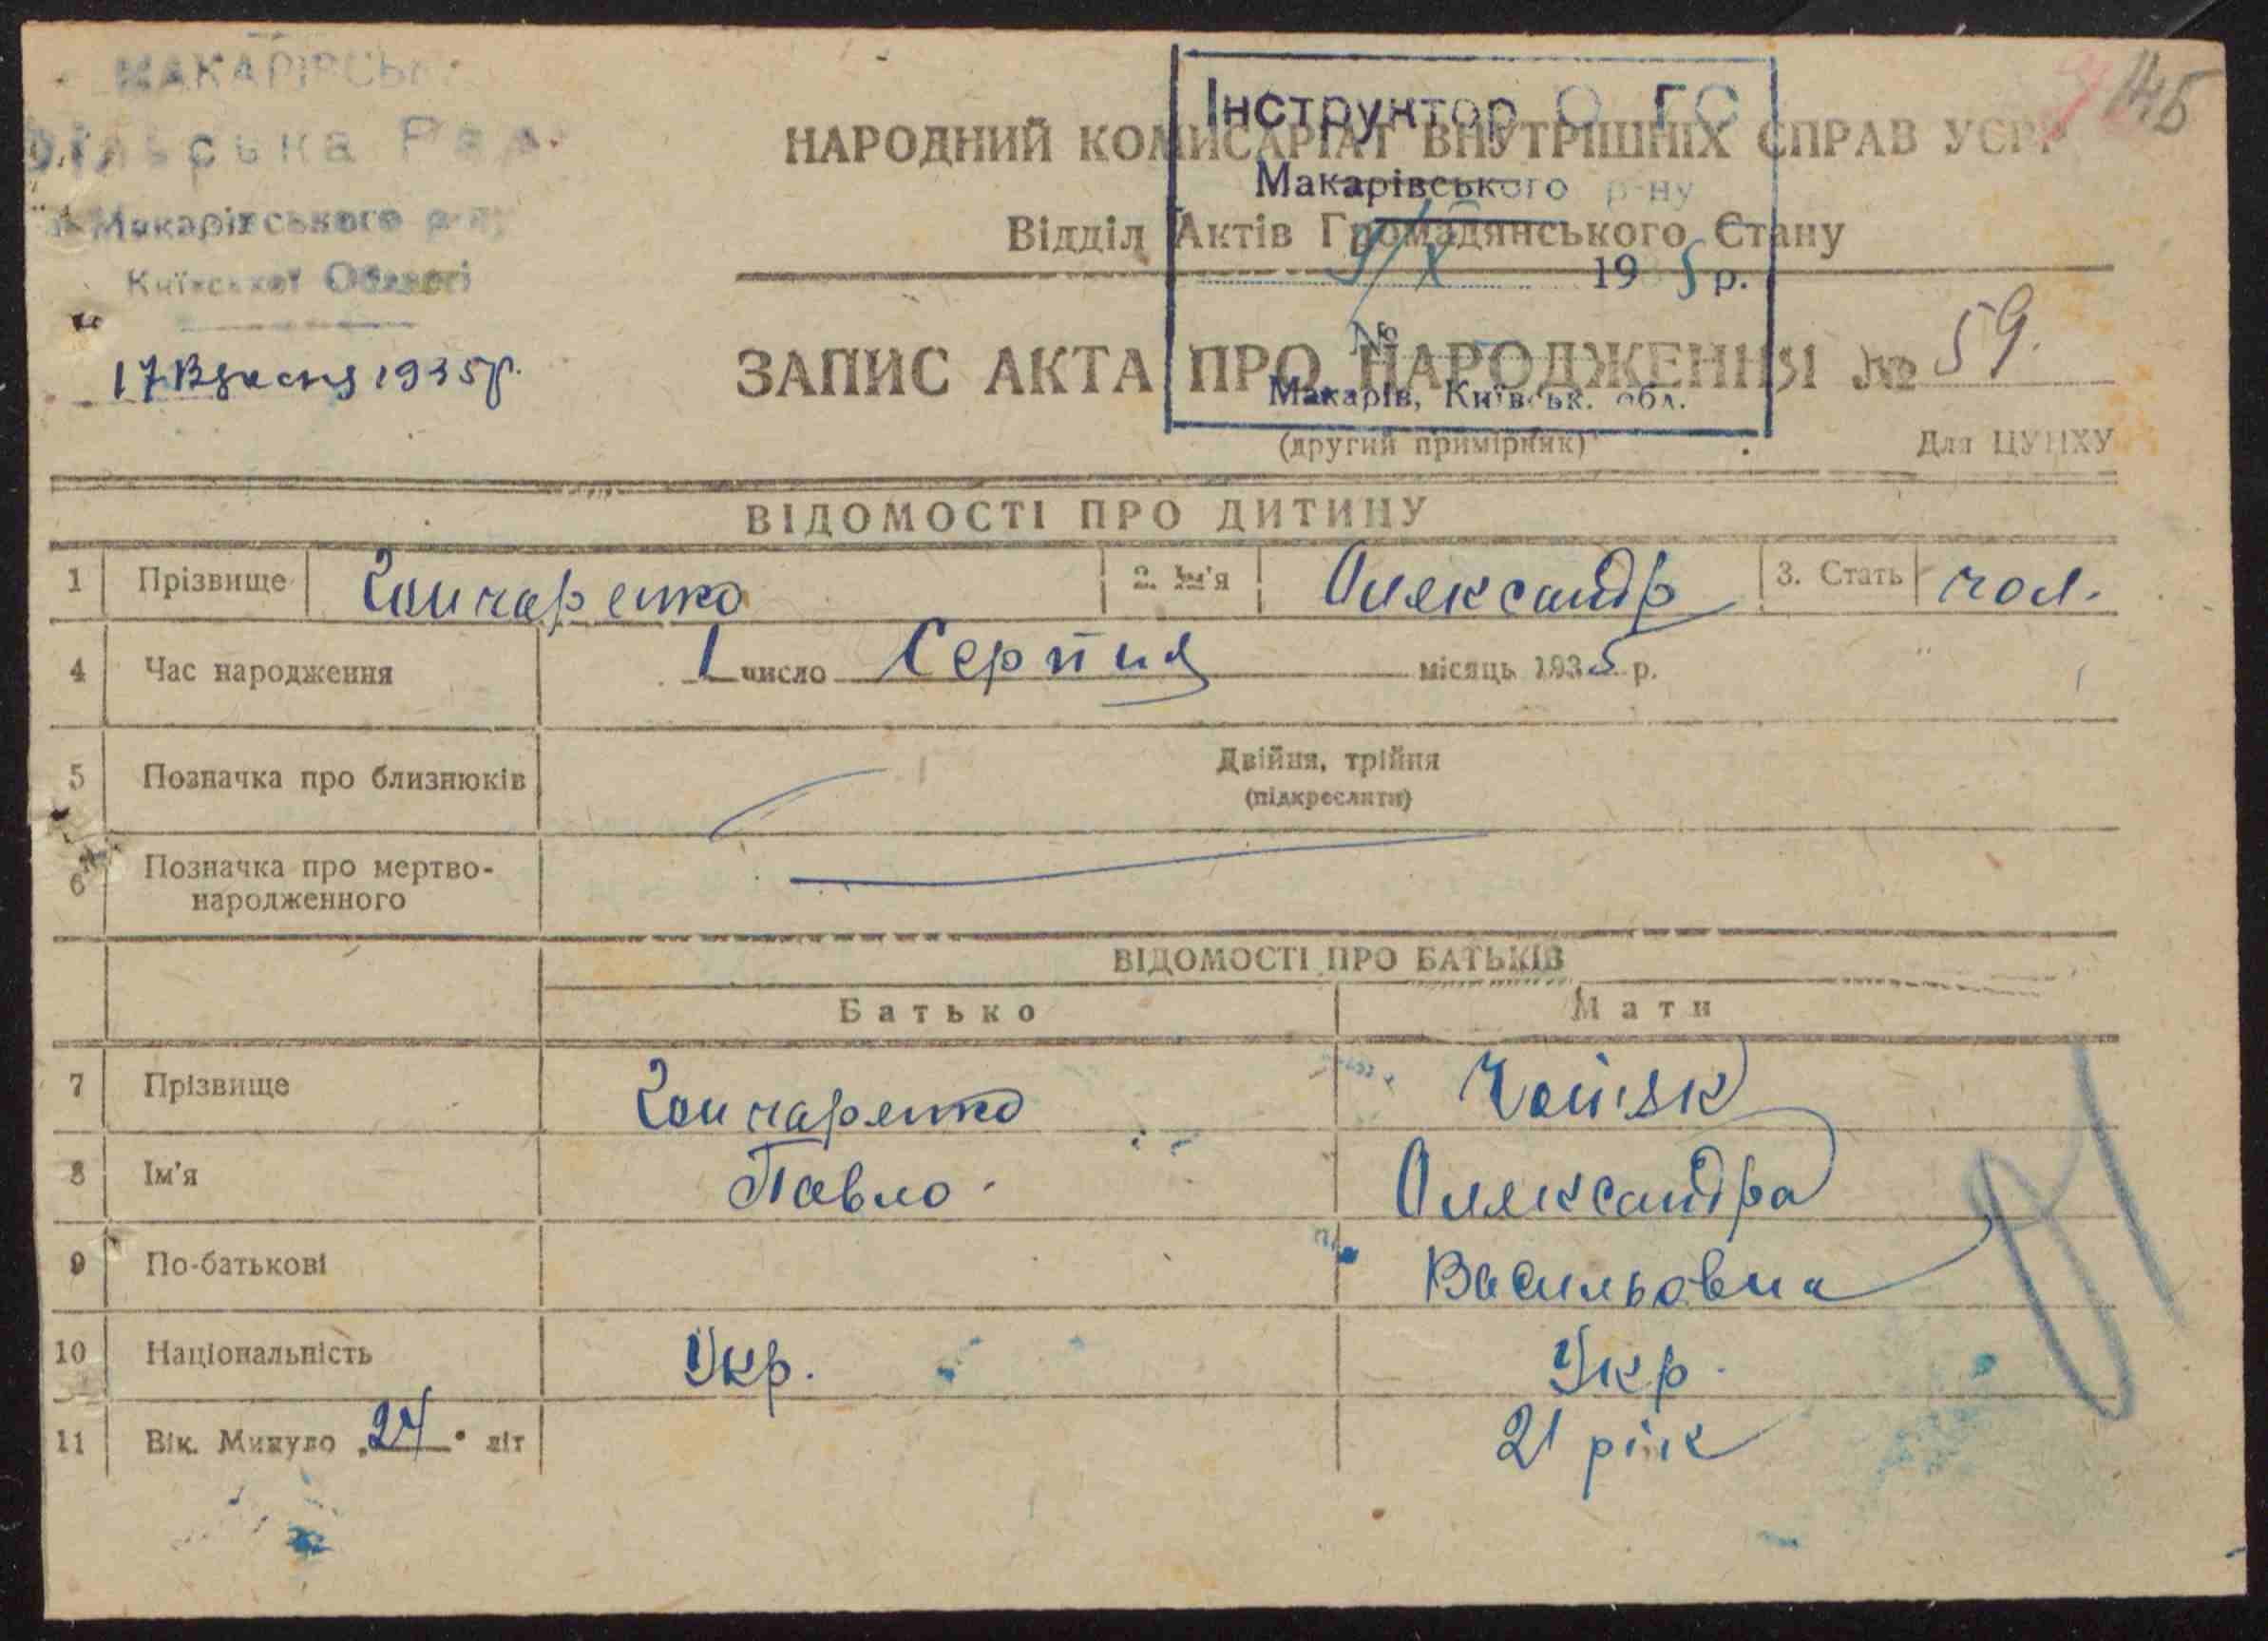 МАКАРІВСЬК
сільська Рада
Макарівського р-ну
Київської Області
17 Вересня 1935 р.
145
Інструктор О ГС
Макарівського р-ну
9/X 1935 р.
№
Макарів, Київськ. обл.
НАРОДНИЙ КОМИСАРІАТ ВНУТРІШНІХ СПРАВ УСРР
Відділ Актів Громадянського Стану
ЗАПИС АКТА ПРО НАРОДЖЕННЯ № 59.
(другий примірник) Для ЦУНХУ
ВІДОМОСТІ ПРО ДИТИНУ
1 Прізвище Гончаренко 2. Ім'я Олександр 3. Стать чол.
4 Час народження 1 число Серпня місяць 1935 р.
5 Позначка про близнюків Двійня, трійня
(підкреслити)
6 Позначка про мертво-
народженного
ВІДОМОСТІ ПРО БАТЬКІВ
Батько Мати
7 Прізвище Гончаренко
8 Ім'я Павло Олександра
9 По-батькові Васильовна
10 Національність Укр. Укр.
11 Вік. Минуло „24" літ 21 рік